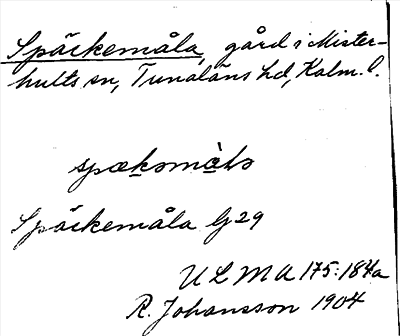 Späckemåla, gård i Mister-
hults sn, Tunaläns hd, Kalm. l.
spækomåla
Späckemåla G 29
ULMA 175:184a
R. Johansson 1904